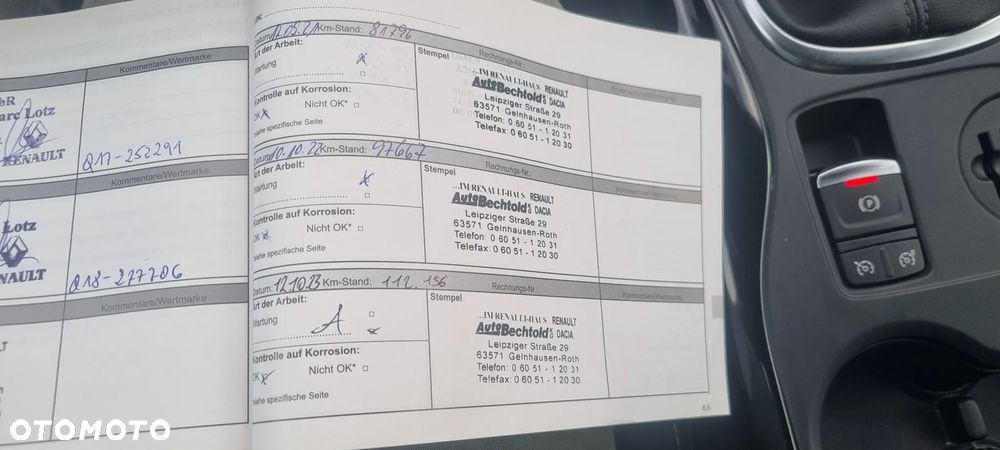 Kommentare/Wertmarke
arc Lotz
RENAULT
Q17-252291
Kommentare/Wertmarke
Lotz
NAULT
Q18-277706
Kommentare/Wertmarke
Km-Stand: 81796
Art der Arbeit:
Wartung
Kontrolle auf Korrosion:
OK
Nicht OK*
siehe spezifische Seite
Stempel
Rechnungs-Nr.
...IM RENAULT-HAUS RENAULT
AutoBechtold DACIA
Leipziger Straße 29
63571 Gelnhausen-Roth
Telefon: 0 60 51 - 1 20 31
Telefax: 0 60 51 - 1 20 30
Kommentare/Wertmarke
Datum: 10.10.22 Km-Stand: 97667
Art der Arbeit:
Wartung
Kontrolle auf Korrosion:
OK
Nicht OK*
siehe spezifische Seite
Stempel
Rechnungs-Nr.:
...IM RENAULT-HAUS RENAULT
AutoBechtold DACIA
Leipziger Straße 29
63571 Gelnhausen-Roth
Telefon: 0 60 51 - 1 20 31
Telefax: 0 60 51 - 1 20 30
Kommentare/Wertmarke
Datum: 12.10.23 Km-Stand: 112.156
Art der Arbeit:
Wartung
A
Kontrolle auf Korrosion:
OK
Nicht OK*
siehe spezifische Seite
Stempel
Rechnungs-Nr.:
...IM RENAULT-HAUS RENAULT
AutoBechtold DACIA
Leipziger Straße 29
63571 Gelnhausen-Roth
Telefon: 0 60 51 - 1 20 31
Telefax: 0 60 51 - 1 20 30
Kommentare/Wertmarke
P
OTOMOTO